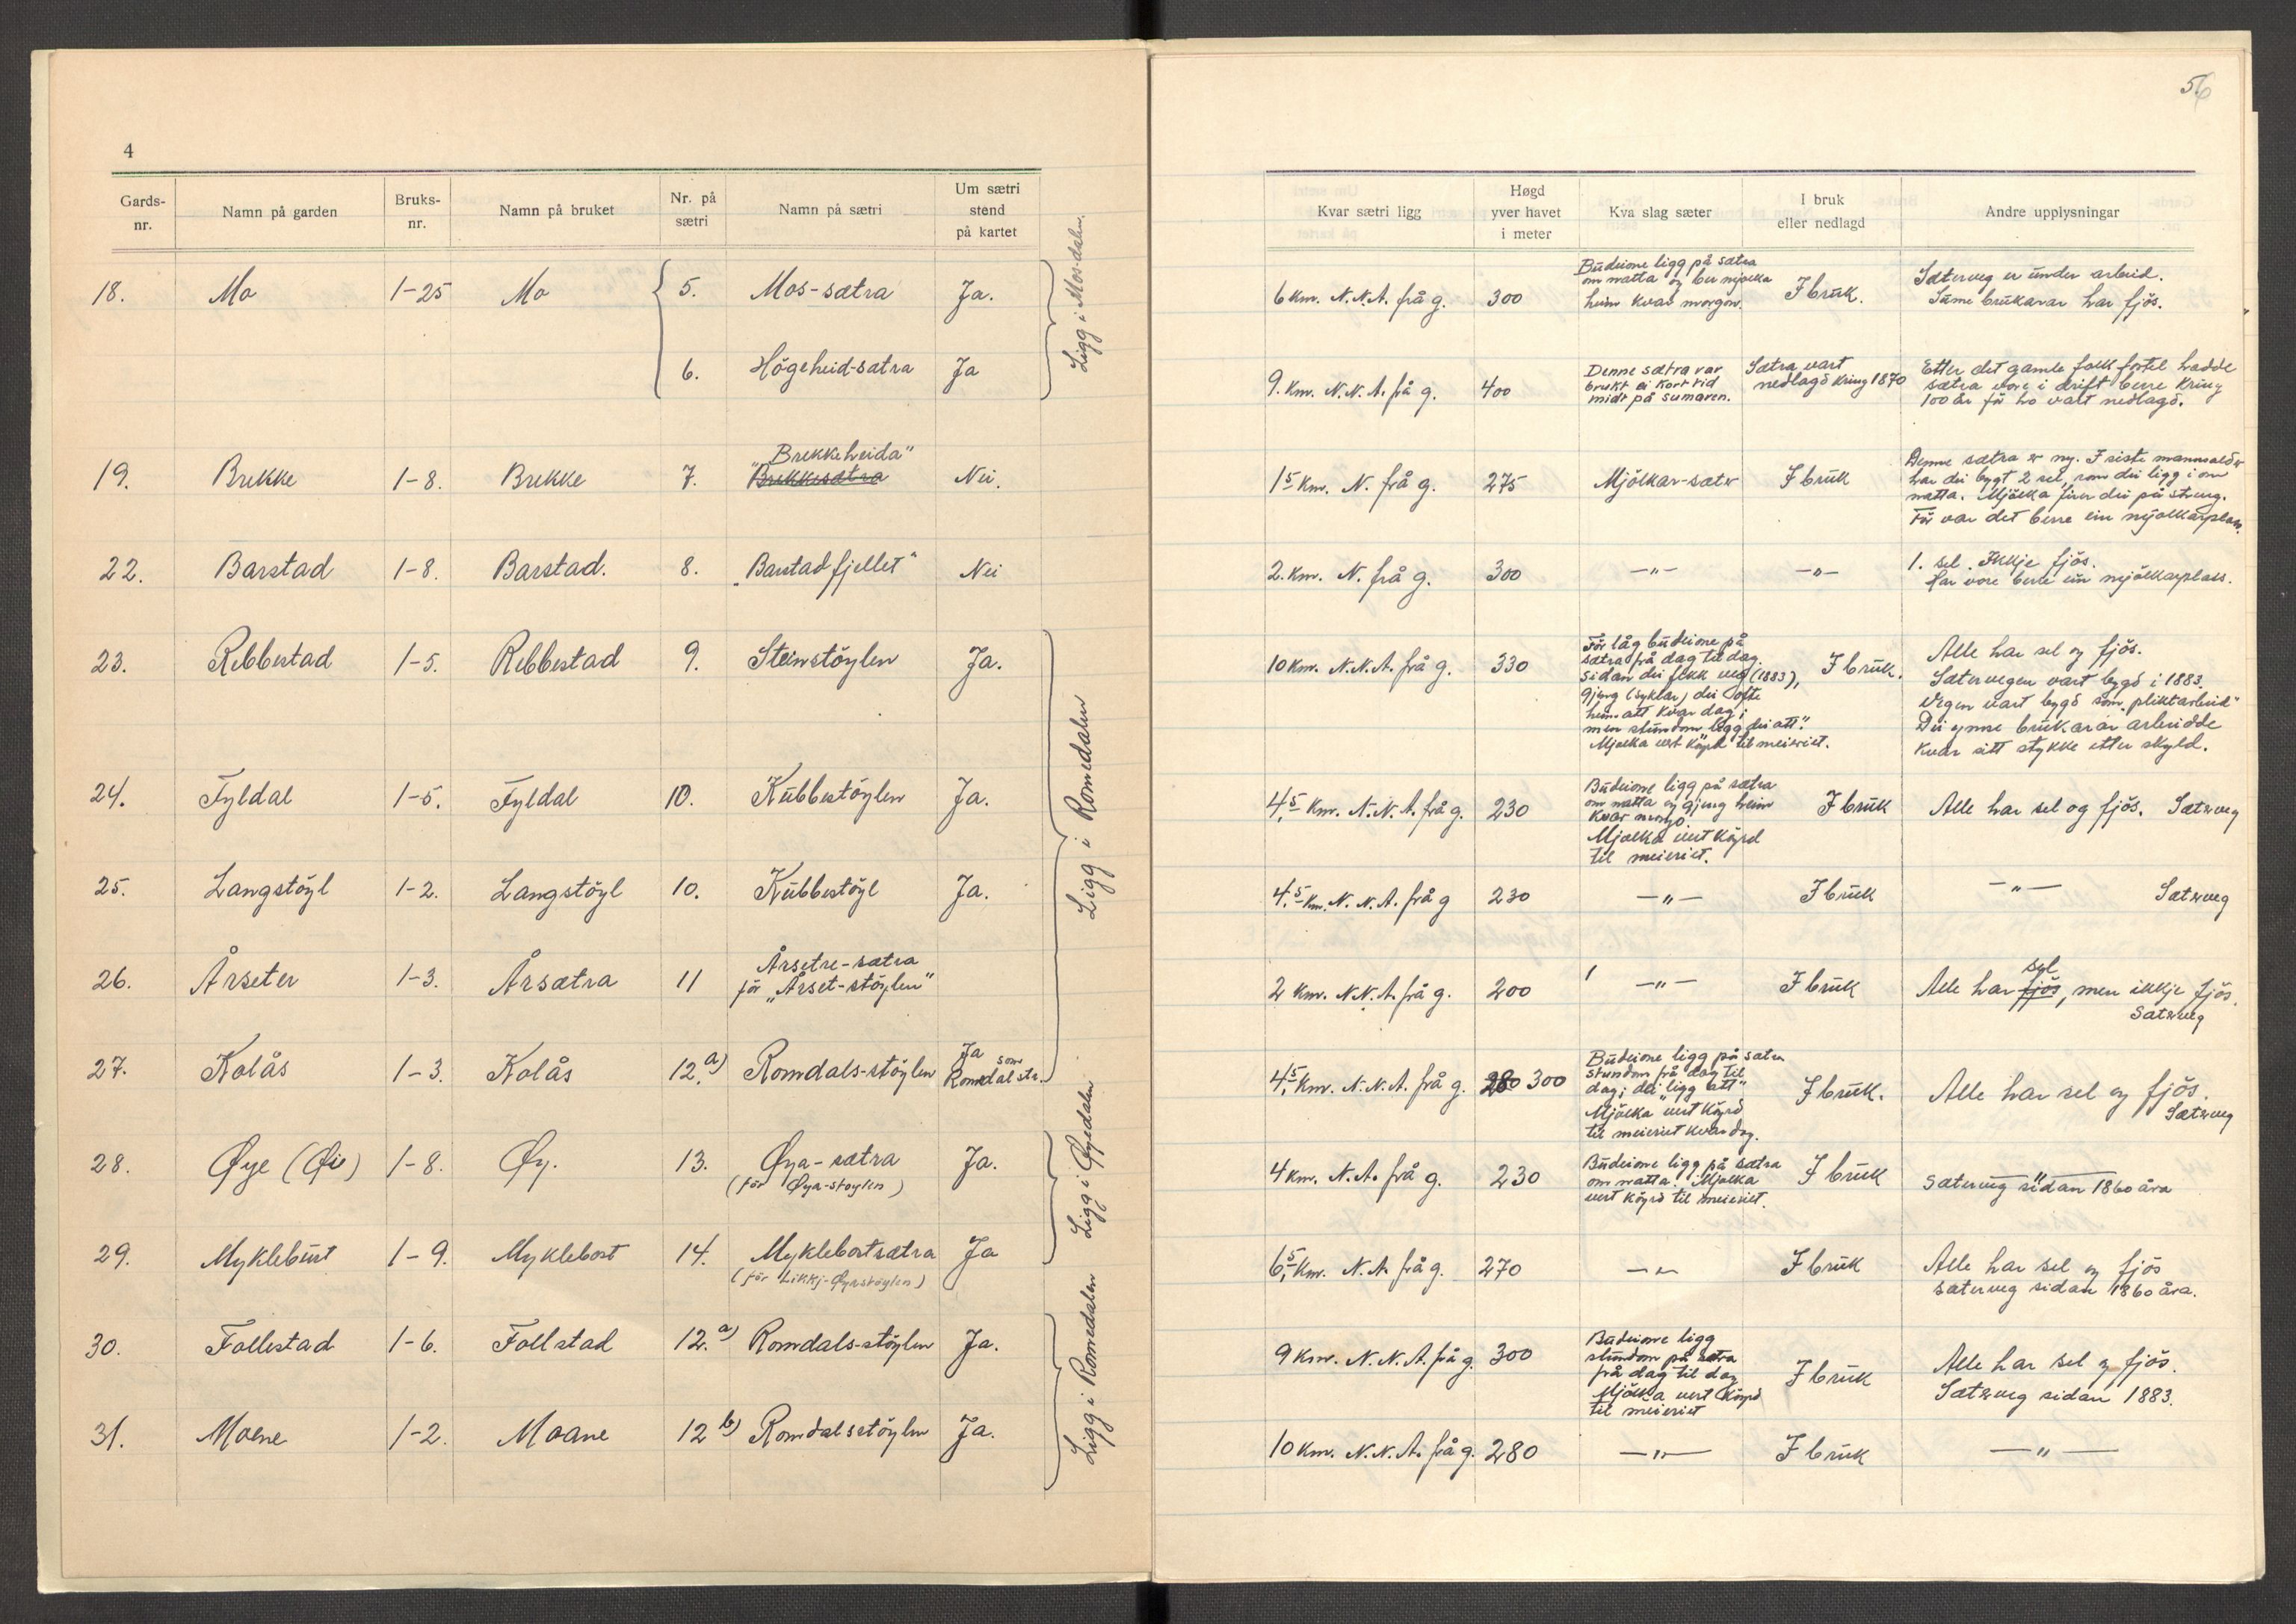 4
Gards-nr.
Namn på garden
Bruks-nr.
Namn på bruket
Nr. på sætri
Namn på sætri
Um sætri stend på kartet
18. Mo 1-25 Mo 5. Mos-sætra Ja.
6. Högeheid-sætra Ja
Ligg i Mos-dalen.
19. Brekke 1-8. Brekke 7. "Brekkeheida"
Brekkesætra Nei.
22. Barstad 1-8. Barstad. 8. "Barstadfjellet" Nei
23. Rebbestad 1-5. Rebbestad 9. Steinstöylen Ja.
24. Fyldal 1-5. Fyldal 10. Kubbestöylen Ja.
25. Langstöyl 1-2. Langstöyl 10. Kubbestöyl Ja.
26. Årseter 1-3. Årsætra 11 Årsetre-sætra
för "Årset-stöylen"
27. Kolås 1-3. Kolås 12.a) Romdals-stöylen Ja som
Romdalstr.
Ligg i Romedalen
28. Øye (Øi) 1-8. Øy. 13. Øya-sætra Ja.
(för Øya-stöylen)
29. Myklebust 1-9. Myklebost 14. Myklebostsætra Ja
(för Likkj-Øyastöylen)
Ligg i Øyedalen
30. Follestad 1-6. Follstad 12.a) Romdals-stöylen Ja.
31. Moene 1-2. Moane 12 b) Romdalsstöylen Ja.
Ligg i Romedalen
5.
6
Kvar sætri ligg
Høgd yver havet i meter
Kva slag sæter
I bruk eller nedlagd
Andre upplysningar
6 Km. N.N.A. frå g. 300
Budeione ligg på sætra
om natta og ber mjølka
heim kvar morgon.
I bruk.
Sæterveg er under arbeid.
Sume brukarar har fjös.
9. Km. N.N.A. frå g. 400
Denne sætra var
brukt ei kort tid
midt på sumaren.
Sætra vart
nedlagd kring 1870
Etter det gamle folk fortel hadde
sætra vore i drift berre kring
100 år för ho vart nedlagd.
1⁵ Km. N. frå g. 275 Mjölkar-sæter I bruk
Denne sætra er ny. I siste mannsalder
har dei bygt 2 sel, som dei ligg i om
natta. Mjölka firer dei på streng.
För var det berre ein mjølkarplass.
2. Km. N. frå g. 300 —"— —"—
1. sel. Ikkje fjös.
Har vore berre ein mjölkarplass.
10 Km. N.N.A. frå g. 330
För låg budeione på
sætra frå dag til dag.
Sidan dei fekk veg (1883),
gjeng (syklar) dei ofte
heim att kvar dag;
men stundom "ligg dei att".
Mjølka vert köyrd til meieriet.
I bruk.
Alle har sel og fjös.
Sætervegen vart bygd i 1883.
Vegen vart bygd som "pliktarbeid"
Dei ymse brukarar arbeidde
kvar sitt stykke etter skyld.
4,⁵ Km. N.N.A. frå g. 230
Budeione ligg på sætra
om natta og gjeng heim
kvar morgo.
Mjølka vert köyrd
til meieriet.
I bruk
Alle har sel og fjös. Sæterveg
4,⁵ Km. N.N.A. frå g 230 —"— I bruk —"— Sæterveg
2 Km. N.N.A. frå g. 200 —"— I bruk
sel
Alle har fjös, men ikkje fjös.
Sæterveg
4,⁵ Km. N.N.A. frå g. 280 300
Budeione ligg på sætra
stundom frå dag til
dag; dei "ligg att"
Mjölka vert köyrd
til meieriet kvar dag.
I bruk.
Alle har sel og fjös.
Sæterveg
4 Km. N.A. frå g. 230
Budeione ligg på sætra
om natta. Mjølka
vert köyrd til meieriet.
I bruk
—"—
Sæterveg sidan 1860 åra
6,⁵ Km. N.A. frå g. 270 —"— I bruk
Alle har sel og fjös
Sæterveg sidan 1860 åra.
9 Km. N.N.A. frå g. 300
Budeione ligg
stundom på sætra
frå dag til dag
Mjölka vert köyrd
til meieriet
I bruk
Alle har sel og fjös.
Sæterveg sidan 1883.
10 Km. N.N.A. frå g. 280 —"— I bruk —"—